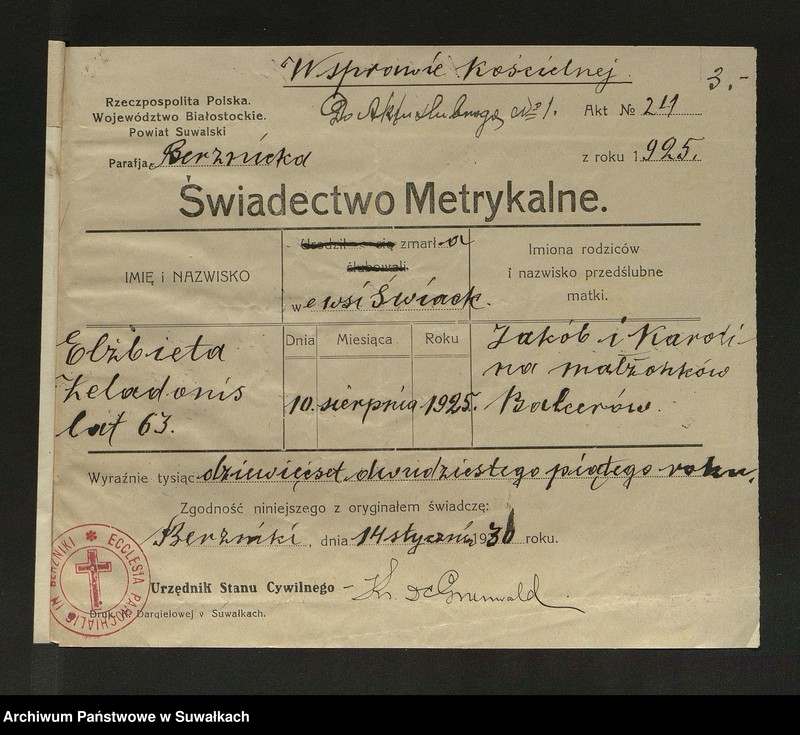 W sprawie Kościelnej.
3.-
Do Aktu ślubnego № 1.
Rzeczpospolita Polska.
Województwo Białostockie.
Powiat Suwalski
Parafja Berżnicka
Akt №
z roku 1925.
Świadectwo Metrykalne.
IMIĘ i NAZWISKO
Urodził się zmarła
ślubowali
we wsi Świack.
Imiona rodziców
i nazwisko przedślubne
matki.
Dnia Miesiąca Roku
Elżbieta
Żeladonis
lat 63.
10. sierpnia 1925.
Jakób i Karoli-
na małżonków
Balcerów.
Wyraźnie tysiąc dziewięćset dwudziestego piątego roku.
Zgodność niniejszego z oryginałem świadczę:
Berżniki, dnia 14 stycznia 193 roku.
Urzędnik Stanu Cywilnego - Ks. Grunwald
ECCLESIA PAROCHIALIS IN BERŻNIKI
Druk. K. Dargielowej v Suwałkach.
Archiwum Państwowe w Suwałkach